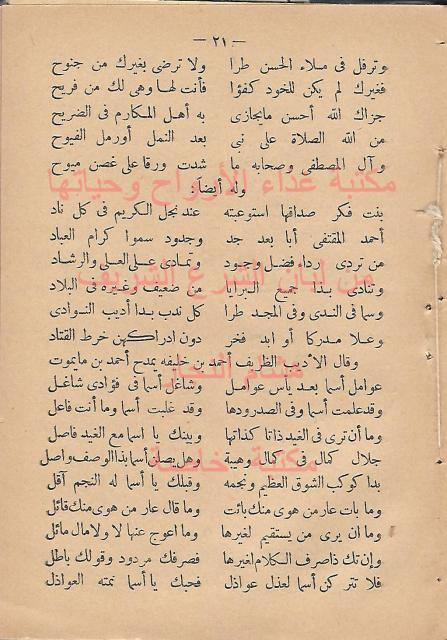 — ٢١ —
وترفل فى ملاء الحسن طرا ولا ترضى بغيرك من جنوح
فغيرك لم يكن للخود كفؤا فأنت لها وهى لك من فريح
جزاك الله أحسن مايجازى به أهل المكارم فى الضريح
من الله الصلاة على نبى بعد النمل أورمل الفيوح
وآل المصطفى وصحابه ما شدت ورقا على غصن ميوح
مكتبة غذاء الأرواح وحياتها
وله أيضا:
بنت فكر صداقها استوعبته عند نجل الكريم فى كل ناد
أحمد المقتفى أبا بعد جد وجدود سموا كرام العباد
من تردى رداء فضل وجود وتمادى على العلى والرشاد
من لبان الشرع الشريف
وتنادى بدا جميع البرايا من ضعيف وغيره فى البلاد
وسما فى الندى وفى المجد طرا كل ندب بدا أديب النوادى
وعلا مدركا أو ابد فخر دون ادراكهن خرط القتاد
وقال الأديب الظريف أحمد بن خليفه يمدح أحمد بن مايموت
هشام النجار
عوامل أسما بعد يأس عوامل وشاغل أسما فى فؤادى شاغل
وقد علمت أسما وفى الصدر ودها وقد غلبت أسما وما أنت فاعل
وما أن ترى فى الغيد ذاتا كذاتها وبينك يا اسما مع الغيد فاصل
جلال كمال فى كمال وهيبة وهل يصلن أسما بذا الوصف واصل
مكتبة خاصة
بدا كوكب الشوق العظيم ونجمه وقبلك يا أسما له النجم آفل
وما بات عار من هوى منك بائت وما قال عار من هوى منك قائل
وما ان يرى من يستقيم لغيرها وما اعوج عنها لا ولا مال مائل
وإن تك ذا صرف الكلام لغيرها فصرفك مردود وقولك باطل
فلا تتركن أسما لعذل عواذل فحبك يا أسما نمته العواذل